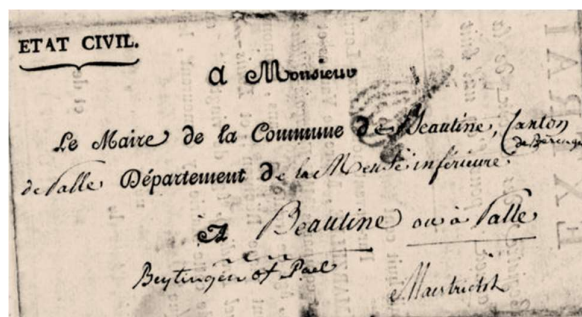 ETAT CIVIL.
A Monsieur
Le Maire de la Commune de Beautine, Canton
de Palle Département de la Meuse inférieure.
A Beautine ou à Palle
Beytingen of Pael
Maestricht